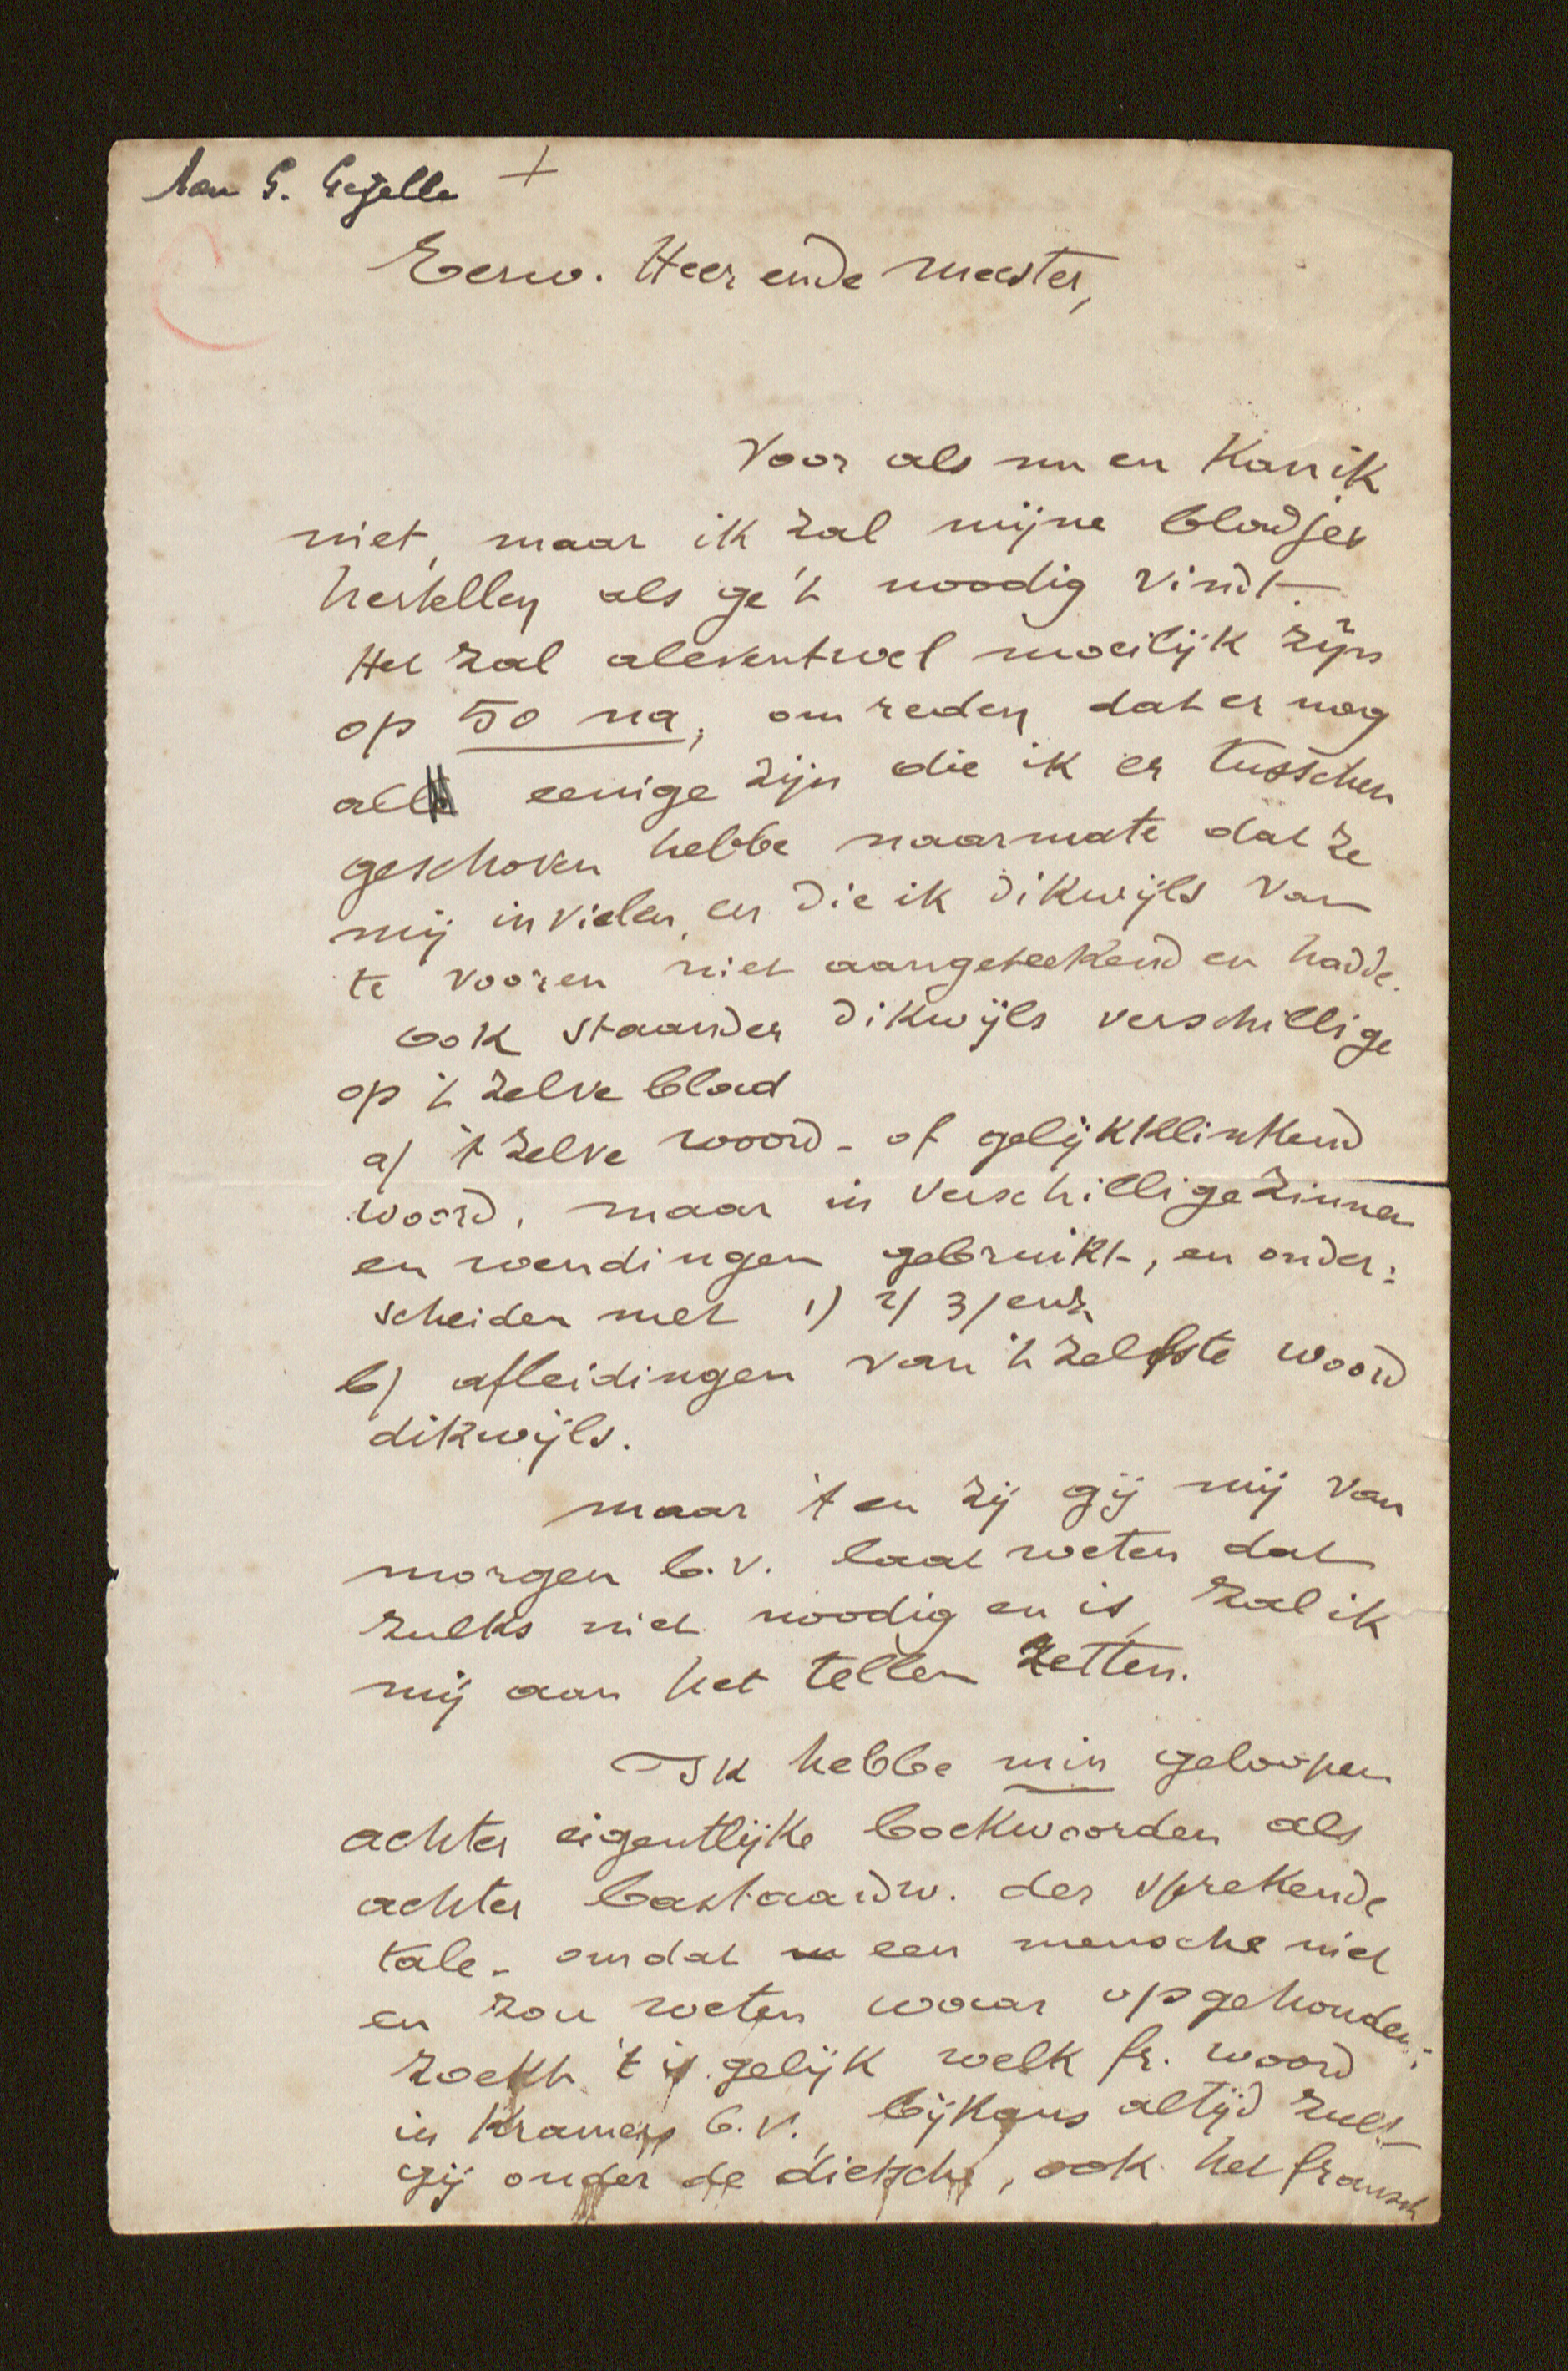 Aan G. Gezelle +
Eerw. Heer ende meester,
Voor als nu en kan ik
niet, maar ik zal mijne bladjes
hertellen als ge 't noodig vindt.
Het zal aleventwel moeilijk zijn
op 50 na, om reden dat er nog
al eenige zijn die ik er tusschen
geschoven hebbe naarmate dat ze
mij invielen, en die ik dikwijls van
te vooren niet aangeteekend en hadde.
ook staan der dikwijls verschillige
op 't zelve blad
a) 't zelve woord - of gelijkklinkend
woord, maar in verschillige zinnen
en wendingen gebruikt, en onder:
scheiden met 1) 2) 3) enz.
b) afleidingen van 't zelfste woord
dikwijls.
maar 't en zij gij mij van
morgen b.v. laat weten dat
zulks niet noodig en is, zal ik
mij aan het tellen zetten.
Ik hebbe min geloopen
achter eigentlijke boekwoorden als
achter bastaardw. der sprekende
tale - omdat een mensche niet
en zou weten waar opgehouden:
zoekt 't is gelijk welk fr. woord
in Kramers b.v., bijkans altijd zult
gij onder de dietsche, ook het fransch